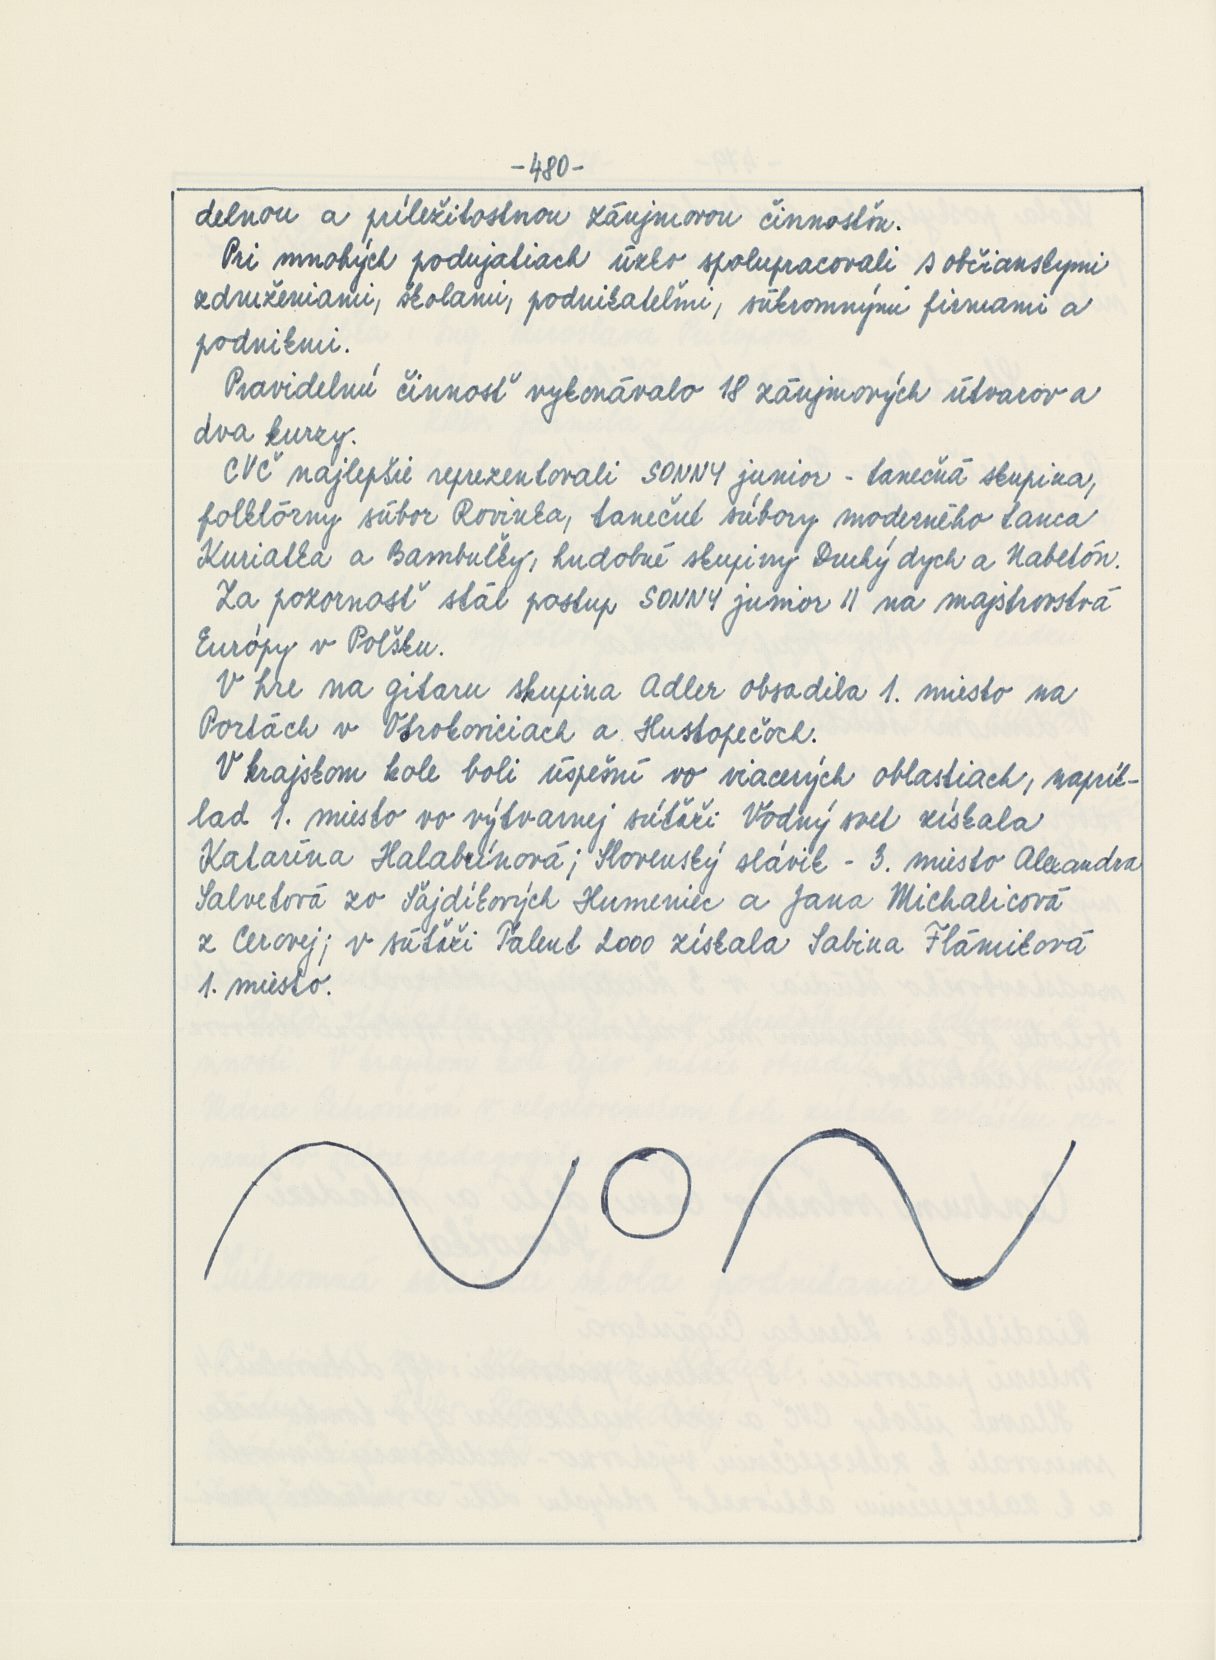 -480-
delnou a príležitostnou záujmovou činnosťou.
Pri mnohých podujatiach úzko spolupracovali s občianskymi
združeniami, školami, podnikateľmi, súkromnými firmami a
podnikmi.
Pravidelnú činnosť vykonávalo 18 záujmových útvarov a
dva kurzy.
CVČ najlepšie reprezentovali SONNY junior - tanečná skupina,
folklórny súbor Rovinka, tanečné súbory moderného tanca
Kuriatka a Bambuľky, hudobné skupiny Druhý dych a Nabetón.
Za pozornosť stál postup SONNY junior II na majstrovstvá
Európy v Poľsku.
V hre na gitaru skupina Adler obsadila 1. miesto na
Portách v Otrokoviciach a Hustopečoch.
V krajskom kole boli úspešní vo viacerých oblastiach, naprík-
lad 1. miesto vo výtvarnej súťaži Vodný svet získala
Katarína Halabrínová; Slovenský slávik - 3. miesto Alexandra
Salvetová zo Šajdíkových Humeniec a Jana Michalicová
z Cerovej; v súťaži Talent 2000 získala Sabina Flámiková
1. miesto.